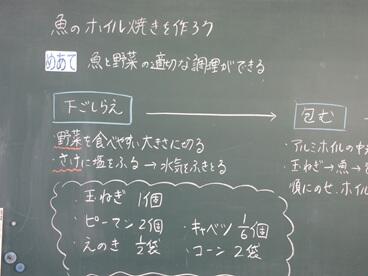 魚のホイル焼きを作ろう
めあて 魚と野菜の適切な調理ができる
下ごしらえ → 包む
・野菜を食べやすい大きさに切る
・さけに塩をふる→水気をふきとる
・アルミホイルの中
玉ねぎ→魚→
順にのせ、ホイル
・玉ねぎ 1個
・ピーマン 2個
・えのき 1/2袋
・キャベツ 1/6個
・コーン 2袋